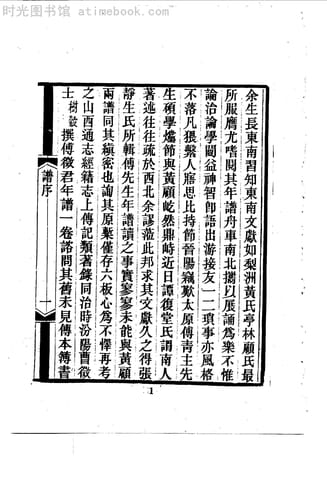 时光图书馆 - atimebook.com
余生長東南習知東南文獻如梨洲黃氏亭林顧氏最
所服膺尤嗜閱其年譜舟車南北攜以展誦爲樂不惟
論治論學闓益神智卽語出游接友一二瑣事亦風格
不落凡猥繫人寤思比持節晉陽竊歎太原傅靑主先
生碩學孊節與黃顧屹然鼎峙近日譚復堂氏謂南人
著述往往疏於西北余謬蒞此邦求其文獻久之得張
靜生氏所輯傅先生年譜讀之事實寥寥未能與黃顧
兩譜同其縝密也詢其原槧僅存六板心爲不懌再考
之山西通志經籍志上傳記類著錄同治時汾陽曹徵
士樹穀撰傅徵君年譜一卷諮問其舊未見傳本簿書
譜序
一
1